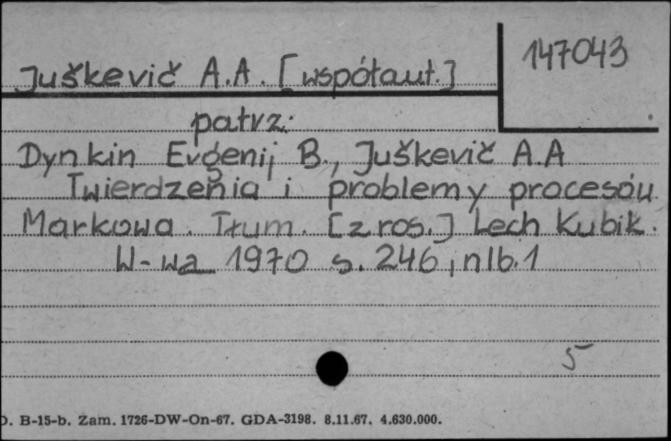 147043
Juškevič A.A. [współaut.]
patrz:
Dynkin Evgenij B., Juškevič A.A
Twierdzenia i problemy procesów
Markowa. Tłum. [z ros.] Lech Kubik.
W-wa 1970 s. 246, nlb. 1
5
D. B-15-b. Zam. 1726-DW-On-67. GDA-3198. 8.11.67. 4.630.000.